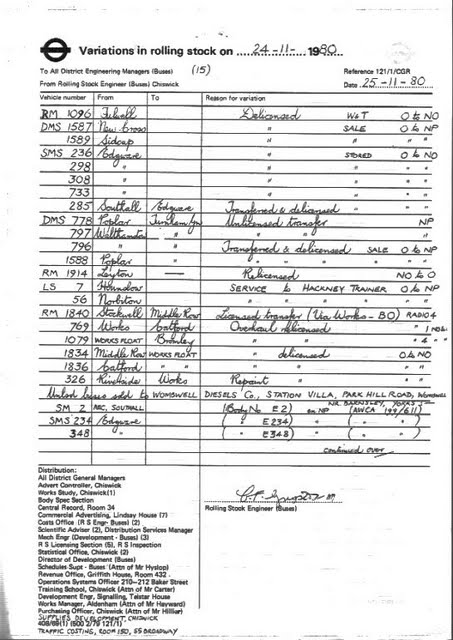 Variations in rolling stock on 24-11- 1980
To All District Engineering Managers (Buses) (15) Reference 121/1/CGR
From Rolling Stock Engineer (Buses) Chiswick Date 25-11-80
Vehicle number From To Reason for variation
RM 1096 Fulwell Delicensed W&T O to NO
DMS 1587 New Cross " SALE O to NP
1589 Sidcup " " " "
SMS 236 Edgware " STORED O to NO
298 " " " " "
308 " " " " "
733 " " " " "
285 Southall Edgware Transferred & delicensed " " "
DMS 778 Poplar Turnham Gn Unlicensed transfer NP
797 Walthamstow " " " "
796 " " Transferred & delicensed SALE O to NP
1588 Poplar " " " " " "
RM 1914 Leyton — Relicensed NO to O
LS 7 Hounslow SERVICE to HACKNEY TRAINER O to NP
56 Norbiton " " " " "
RM 1840 Stockwell Middle Row Licensed transfer (Via Works - BO) RADIO 4
769 Works Catford Overhaul delicensed " 1
1079 WORKS FLOAT Bromley " " " 4 "
1834 Middle Row WORKS FLOAT " delicensed O to NO
1836 Catford " " " " "
326 Riverside Works Repaint " "
Unlcd buses sold to WOMBWELL DIESELS Co., STATION VILLA, PARK HILL ROAD, WOMBWELL
NR. BARNSLEY, YORKS
SM 2 AEC, SOUTHALL (Body No E2) ex NP (AWCA 199/611)
SMS 234 Edgware ( " E234) " ( " " )
348 " ( " E348) " ( " " )
continued over
Distribution:
All District General Managers
Advert Controller, Chiswick
Works Study, Chiswick(1)
Body Spec Section
Central Record, Room 34
Commercial Advertising, Lindsay House (7)
Costs Office (R S Engr- Buses) (2)
Scientific Adviser (2), Distribution Services Manager
Mech Engr (Development - Buses) (3)
R S Licensing Section (5), R S Inspection
Statistical Office, Chiswick (2)
Director of Development (Buses)
Schedules Supt - Buses (Attn of Mr Hyslop)
Revenue Office, Griffith House, Room 432 .
Operations Systems Officer 210-212 Baker Street
Training School, Chiswick (Attn of Mr Carter)
Development Engr, Signalling, Telstar House
Works Manager, Aldenham (Attn of Mr Hayward)
Purchasing Officer, Chiswick (Attn of Mr Hillier)
SUPPLIES DEVELOPMENT, CHISWICK
408/69(1) (500 2/79 121/1)
TRAFFIC COSTING, ROOM 150, 55 BROADWAY
Rolling Stock Engineer (Buses)